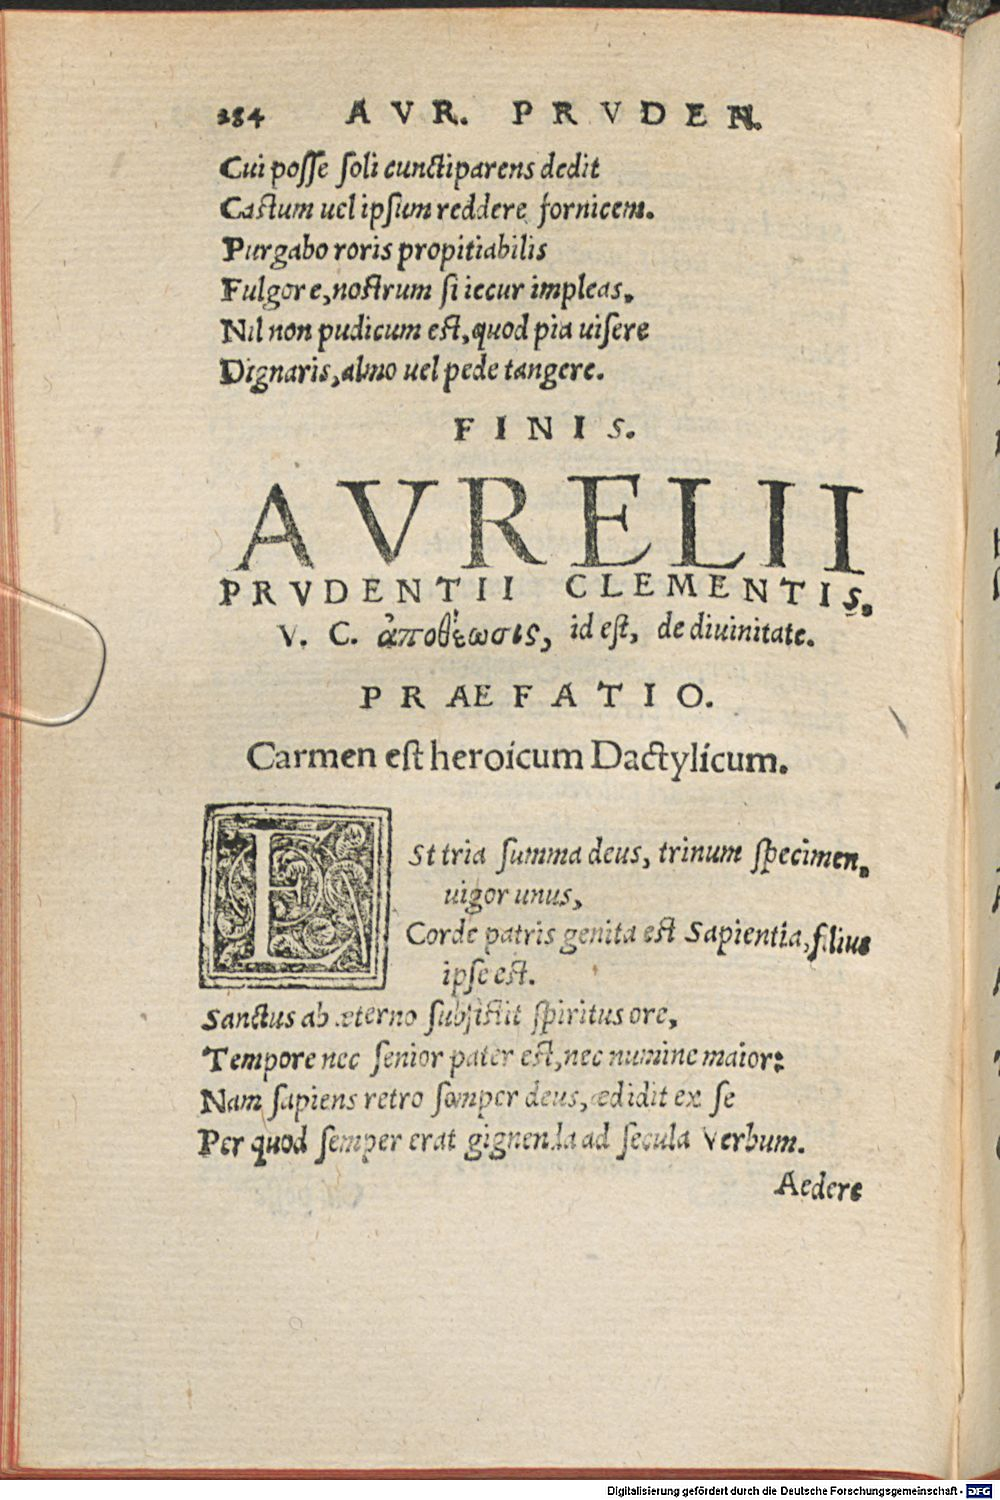 284 AVR. PRVDEN.
Cui posſe ſoli cunctiparens dedit
Castum uel ipſum reddere fornicem.
Purgabo roris propitiabilis
Fulgore, nostrum ſi iecur impleas,
Nil non pudicum est, quod pia uiſere
Dignaris, almo uel pede tangere.
FINIS.
AVRELII
PRVDENTII CLEMENTIS,
V. C. ἀποθέωσις, id eſt, de diuinitate.
PRAEFATIO.
Carmen eſt heroicum Dactylicum.
ESt tria ſumma deus, trinum ſpecimen,
uigor unus,
Corde patris genita est Sapientia, filius
ipſe est.
Sanctus ab æterno ſubſiſtit ſpiritus ore,
Tempore nec ſenior pater est, nec numine maior:
Nam ſapiens retro ſemper deus, ædidit ex ſe
Per quod ſemper erat gignenda ad ſecula Verbum.
Aedere
Digitalisierung gefördert durch die Deutsche Forschungsgemeinschaft - DFG